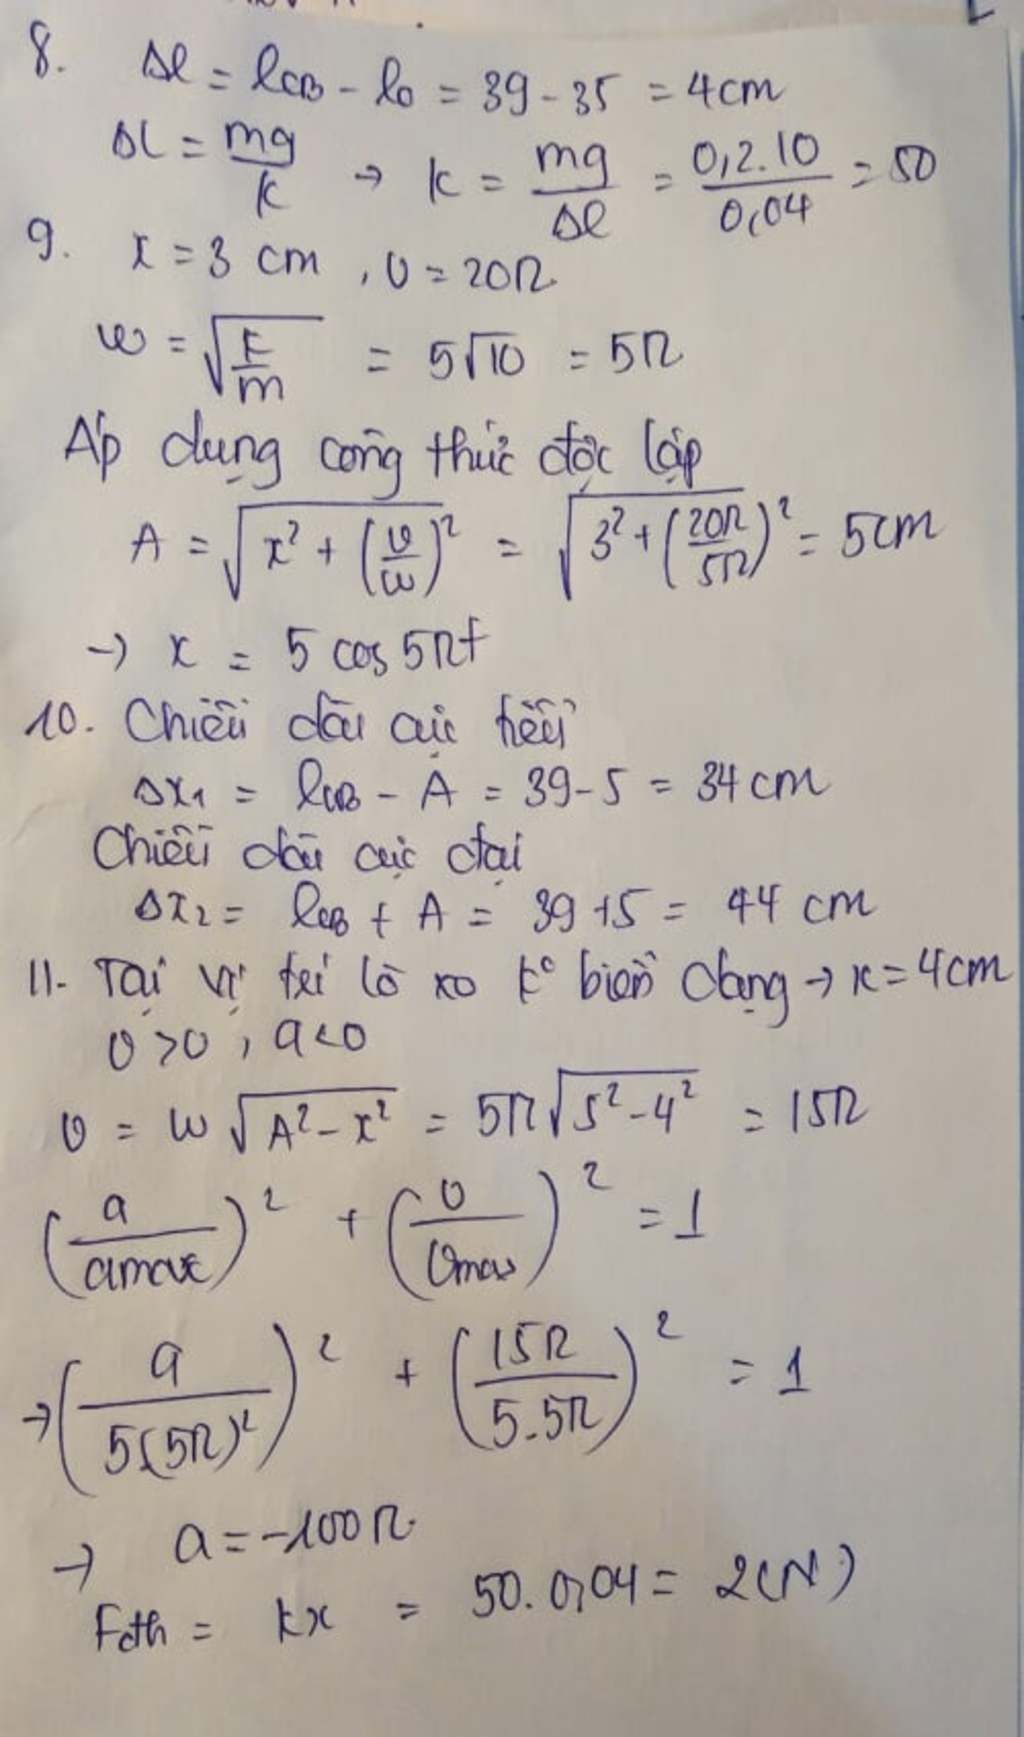 8. Δl = lCB - lo = 39 - 35 = 4cm
Δl = mg/k → k = mg/Δl = 0,2.10/0,04 = 50
9. x = 3 cm, v = 20π
ω = √(k/m) = 5√10 = 5π
Áp dụng công thức độc lập
A = √(x² + (v/ω)²) = √(3² + (20π/5π)²) = 5cm
→ x = 5 cos 5πt
10. Chiều dài cực tiểu
Δx₁ = lCB - A = 39 - 5 = 34 cm
Chiều dài cực đại
Δx₂ = lCB + A = 39 + 5 = 44 cm
11. Tại vị trí lò xo k° biến dạng → x = 4cm
v > 0, a < 0
v = ω√(A² - x²) = 5π√(5² - 4²) = 15π
(a/amax)² + (v/vmax)² = 1
→ (a/5(5π)²)² + (15π/5.5π)² = 1
→ a = -100π
Fđh = kx = 50.0,04 = 2(N)